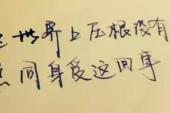 世界上压根没有
同身受这回事